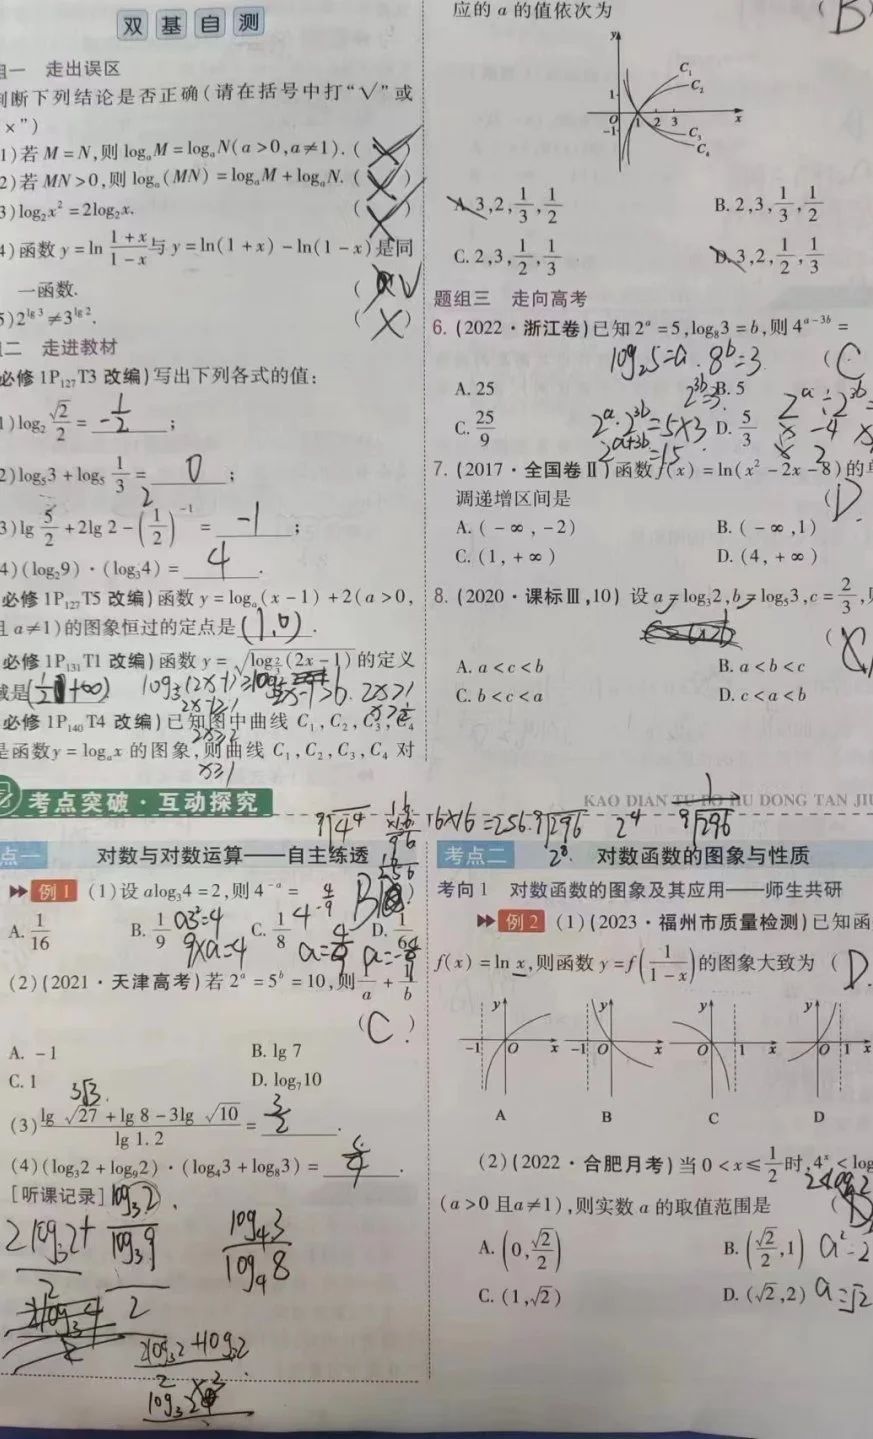 双基自测
组一 走出误区
判断下列结论是否正确(请在括号中打“√”或
×”)
1)若M=N,则logₐM=logₐN(a>0,a≠1).(×)
2)若MN>0,则logₐ(MN)=logₐM+logₐN.(×)
3)log₂x²=2log₂x.(×)
4)函数y=ln (1+x)/(1-x) 与y=ln(1+x)-ln(1-x)是同
一函数.( √
5)2^(lg3)≠3^(lg2).(×)
组二 走进教材
必修1P₁₂₇T3改编)写出下列各式的值:
1)log₂ √2/2 = -1/2 ;
2)log₅3+log₅ 1/3 = 0 ;
3)lg 5/2 +2lg 2-(1/2)⁻¹ = -1 ;
2
4)(log₂9)·(log₃4)= 4 .
必修1P₁₂₇T5改编)函数y=logₐ(x-1)+2(a>0,
且a≠1)的图象恒过的定点是(1,0).
必修1P₁₃₁T1改编)函数y=√(log_(2/3)(2x-1))的定义
域是
2x-1>0. 2x>1
2x≥2
x≥1
必修1P₁₄₀T4改编)已知图中曲线C₁,C₂,C₃,C₄
是函数y=logₐx的图象,则曲线C₁,C₂,C₃,C₄对
应的a的值依次为 (B)
y
C₁
C₂
1
O 1 2 3 x
-1
C₃
C₄
A.3,2,1/3,1/2 B.2,3,1/3,1/2
C.2,3,1/2,1/3 D.3,2,1/2,1/3
题组三 走向高考
6.(2022·浙江卷)已知2ᵃ=5,log₈3=b,则4^(a-3b)=
(C
log₂5=a. 8ᵇ=3
A.25 B.5
2^(3b)=3
C.25/9 D.5/3
2ᵃ·2^(3b)=5×3
2^(a+3b)=15
2ᵃ÷2^(3b)=
× -4 ×
× 2
7.(2017·全国卷Ⅱ)函数f(x)=ln(x²-2x-8)的单
调递增区间是 (D
A.(-∞,-2) B.(-∞,1)
C.(1,+∞) D.(4,+∞)
8.(2020·课标Ⅲ,10)设a=log₃2,b=log₅3,c=2/3,则
(
A.a<c<b B.a<b<c
C.b<c<a D.c<a<b
考点突破·互动探究
KAO DIAN TU PO HU DONG TAN JIU
16×16=256.
9√296
2⁸
2⁴
9√296
点一 对数与对数运算——自主练透
例1 (1)设alog₃4=2,则4⁻ᵃ= (B)
A.1/16 B.1/9 C.1/8 D.1/64
9×a=4
(2)(2021·天津高考)若2ᵃ=5ᵇ=10,则1/a+1/b
(C)
A.-1 B.lg 7
C.1 D.log₇10
3√3.
(3)(lg √27+lg 8-3lg √10)/(lg 1.2)= 3/2 .
(4)(log₃2+log₉2)·(log₄3+log₈3)= 5/4 .
[听课记录]
2log₃2+ log₃2/log₃9
2
log₄3/log₄8
考点二 对数函数的图象与性质
考向1 对数函数的图象及其应用——师生共研
例2 (1)(2023·福州市质量检测)已知函
f(x)=ln x,则函数y=f(1/(1-x))的图象大致为 (D
y y y y
-1 O x -1 O x O 1 x O 1 x
A B C D
(2)(2022·合肥月考)当0<x≤1/2时,4ˣ<log
(a>0且a≠1),则实数a的取值范围是 (
A.(0,√2/2) B.(√2/2,1)
a²=2
C.(1,√2) D.(√2,2)
a=√2